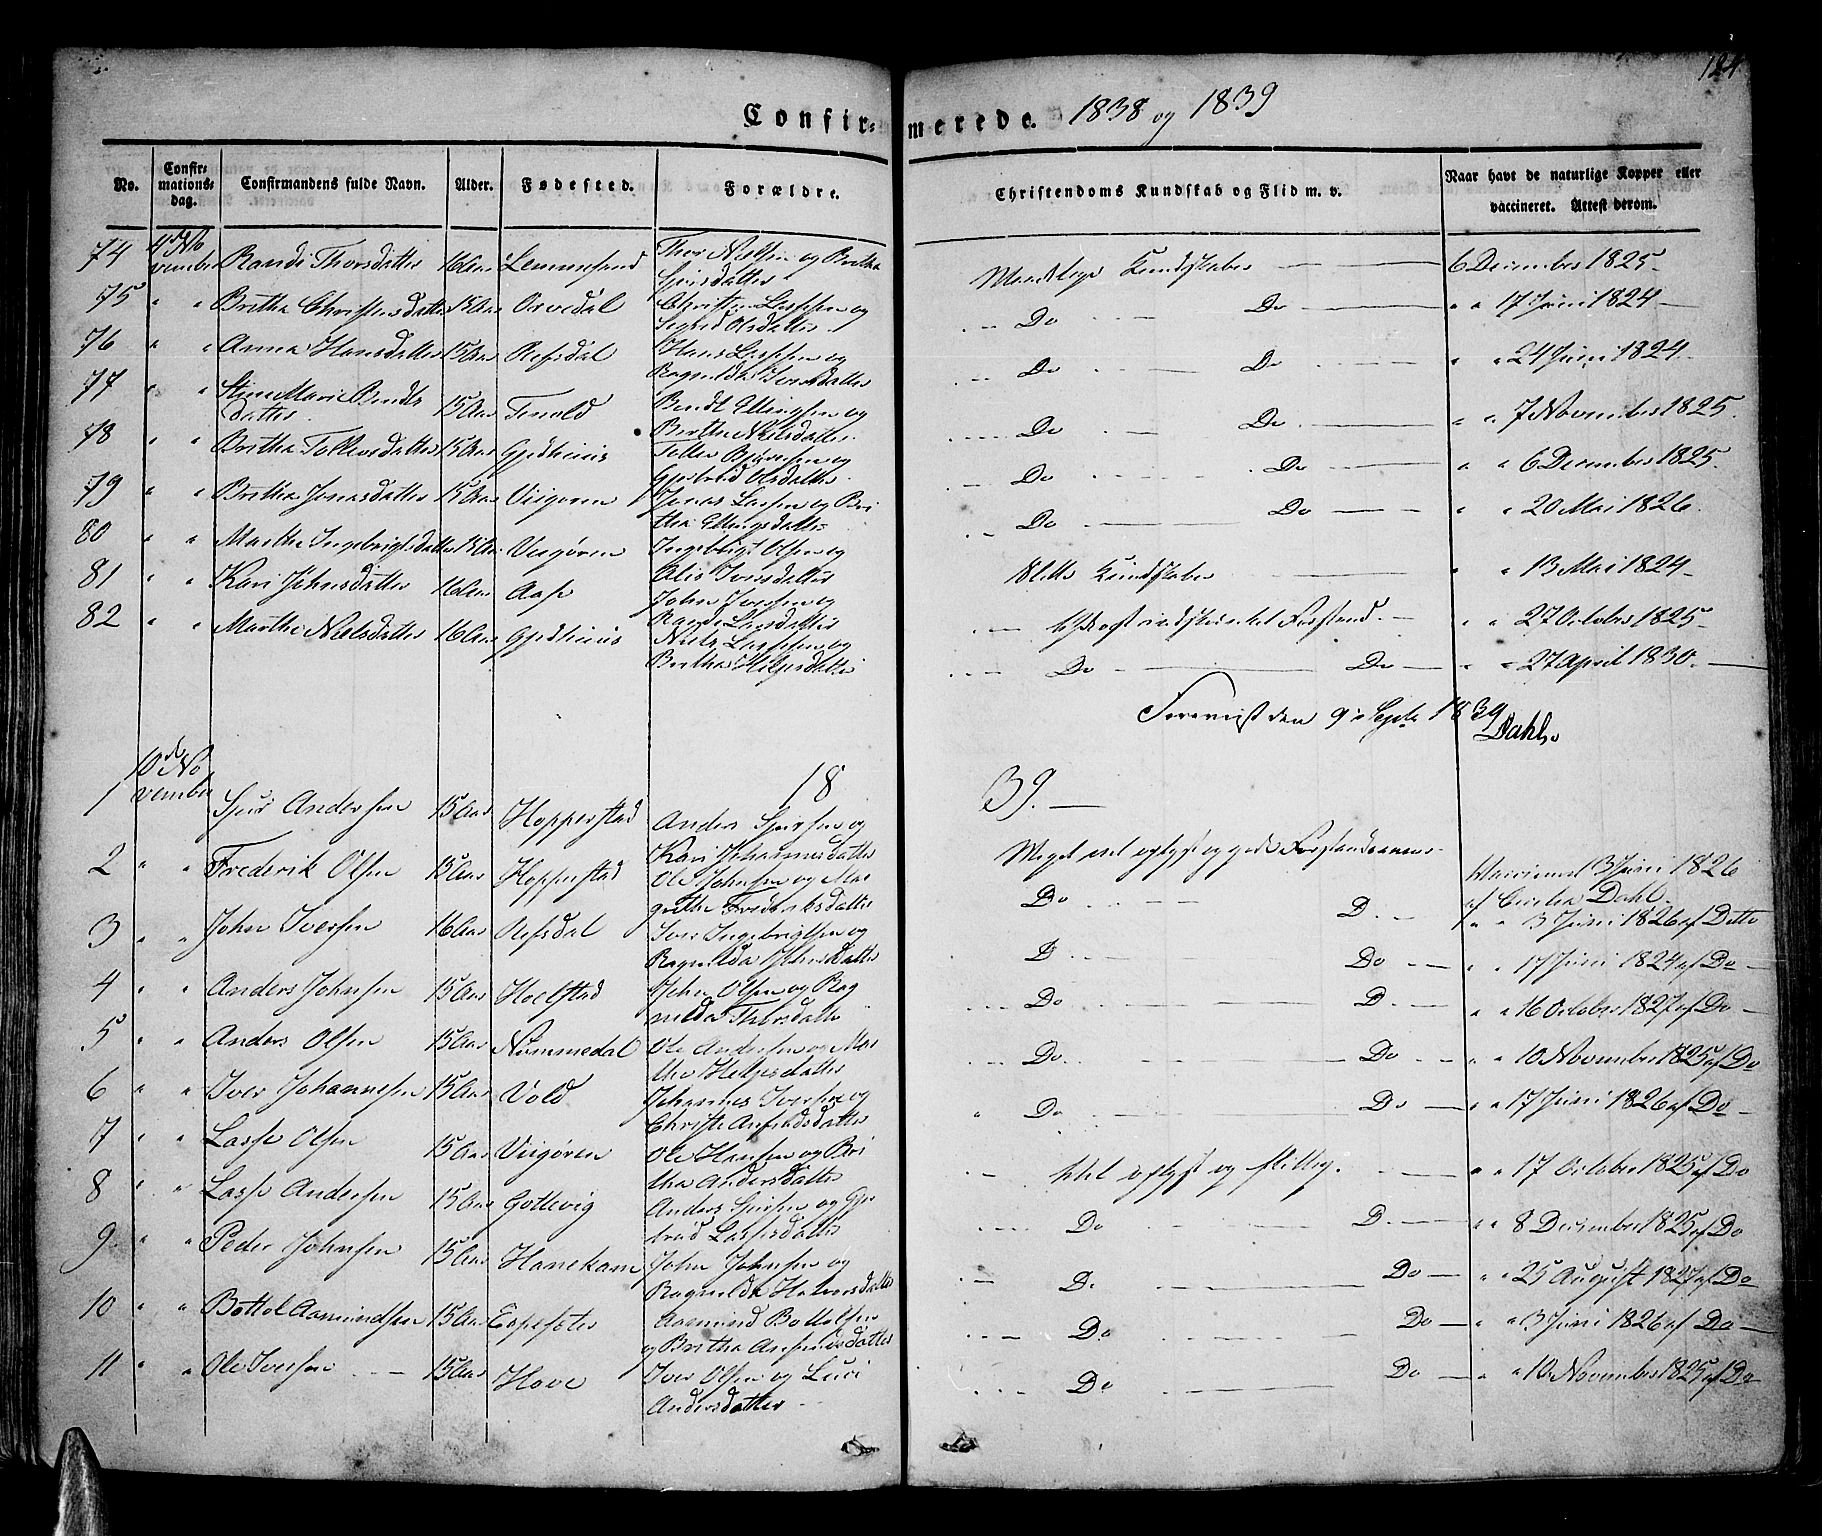 124
Confirmerede. 1838 og 1839
No. Confirmationsdag. Confirmandens fulde Navn. Alder. Fødested. Forældre. Christendoms Kundskab og Flid m. v. Naar havt de naturlige Kopper eller vaccineret. Attest derom.
74 4de November Randi Thorsdatter 16 Aar Thor Nielsen og Britha Sjursdatter Maadelige Kundskaber 6 December 1825
75 " " Britha Christensdatter 15 Aar Orvedal Christen Lassesen og Sigrid Olsdatter Do Do " " 17 Juni 1824
76 " " Anna Hansdatter 15 Aar Refsdal Hans Lassesen og Ragnilda Iversdatter Do Do " " 24 Juni 1824
77 " " Stine Marie Bendtsdatter 15 Aar Tenold Bendt Ellingsen og Berthe Nielsdatter Do Do " " 7 November 1825
78 " " Britha Tollevsdatter 15 Aar Tollev og Gjertrud Olsdatter Do Do " " 6 December 1825
79 " " Britha Jonasdatter 15 Aar Vigøren Jonas Lassesen og Britha Ellingsdatter Do Do " " 20 Mai 1826
80 " " Marthe Ingebrigtsdatter 15 Aar Vigøren Ingebrigt Olsen og Iversdatter Slette Kundskaber " " 13 Mai 1824
81 " " Kari Johnsdatter 16 Aar Aase John Iversen og Randi Larsdatter indskrænket Forstand " " 27 October 1825
82 " " Marthe Nielsdatter 16 Aar Niels Lassesen og Britha Helgesdatter Do Do " " 27 April 1830
Foreviist den 9de Septr 1839 Dahl.
1839.
1 10de November Sjur Andersen 15 Aar Hopperstad Anders Sjursen og Kari Johannesdatter Meget vel oplyst og gode Forstandsevner Vaccineret 3 Juni 1826 af Cecilia Dahl.
2 " " Frederik Olsen 15 Aar Hopperstad Ole Johnsen og Margrethe Fredriksdatter Do D. " " 3 Juni 1826 af Ditto
3 " " John Iversen 16 Aar Refsdal Iver Ingebrigtsen og Ragnilda Johnsdatter D. Do " " 17 Juni 1824 af Do
4 " " Anders Johnsen 15 Aar Hoelstad John Olsen og Ragnilda Thorsdatter Do D. " " 16 October 1827 af Do
5 " " Anders Olsen 15 Aar Nummedal Ole Andersen og Marthe Helgesdatter Do. Do " " 10 November 1825 af Do
6 " " Iver Johannesen 15 Aar Vold Johannes Iversen og Christi Do Do " " 17 Juni 1826 af Do
7 " " Lasse Olsen 15 Aar Vigøren Ole Hansen og Britha Andersdatter Vel oplyst og flittig. " " 17 October 1825 af Do
8 " " Lasse Andersen 15 Aar Gottevig Anders Sjursen og Gjertrud Lassesdatter Do D. " " 8 December 1825 af Do
9 " " Peder Johnsen 15 Aar Hanekam John Johnsen og Ragnilda Halvorsdatter D. Do " " 25 August 1827 af Do
10 " " Bottol Aamundsen 15 Aar Espesæter Aamund Bottolsen og Britha Do Do " " 3 Juni 1826 af Do
11 " " Ole Iversen 15 Aar Hove Iver Olsen og Luci Andersdatter Do Do " " 10 November 1825 af Do